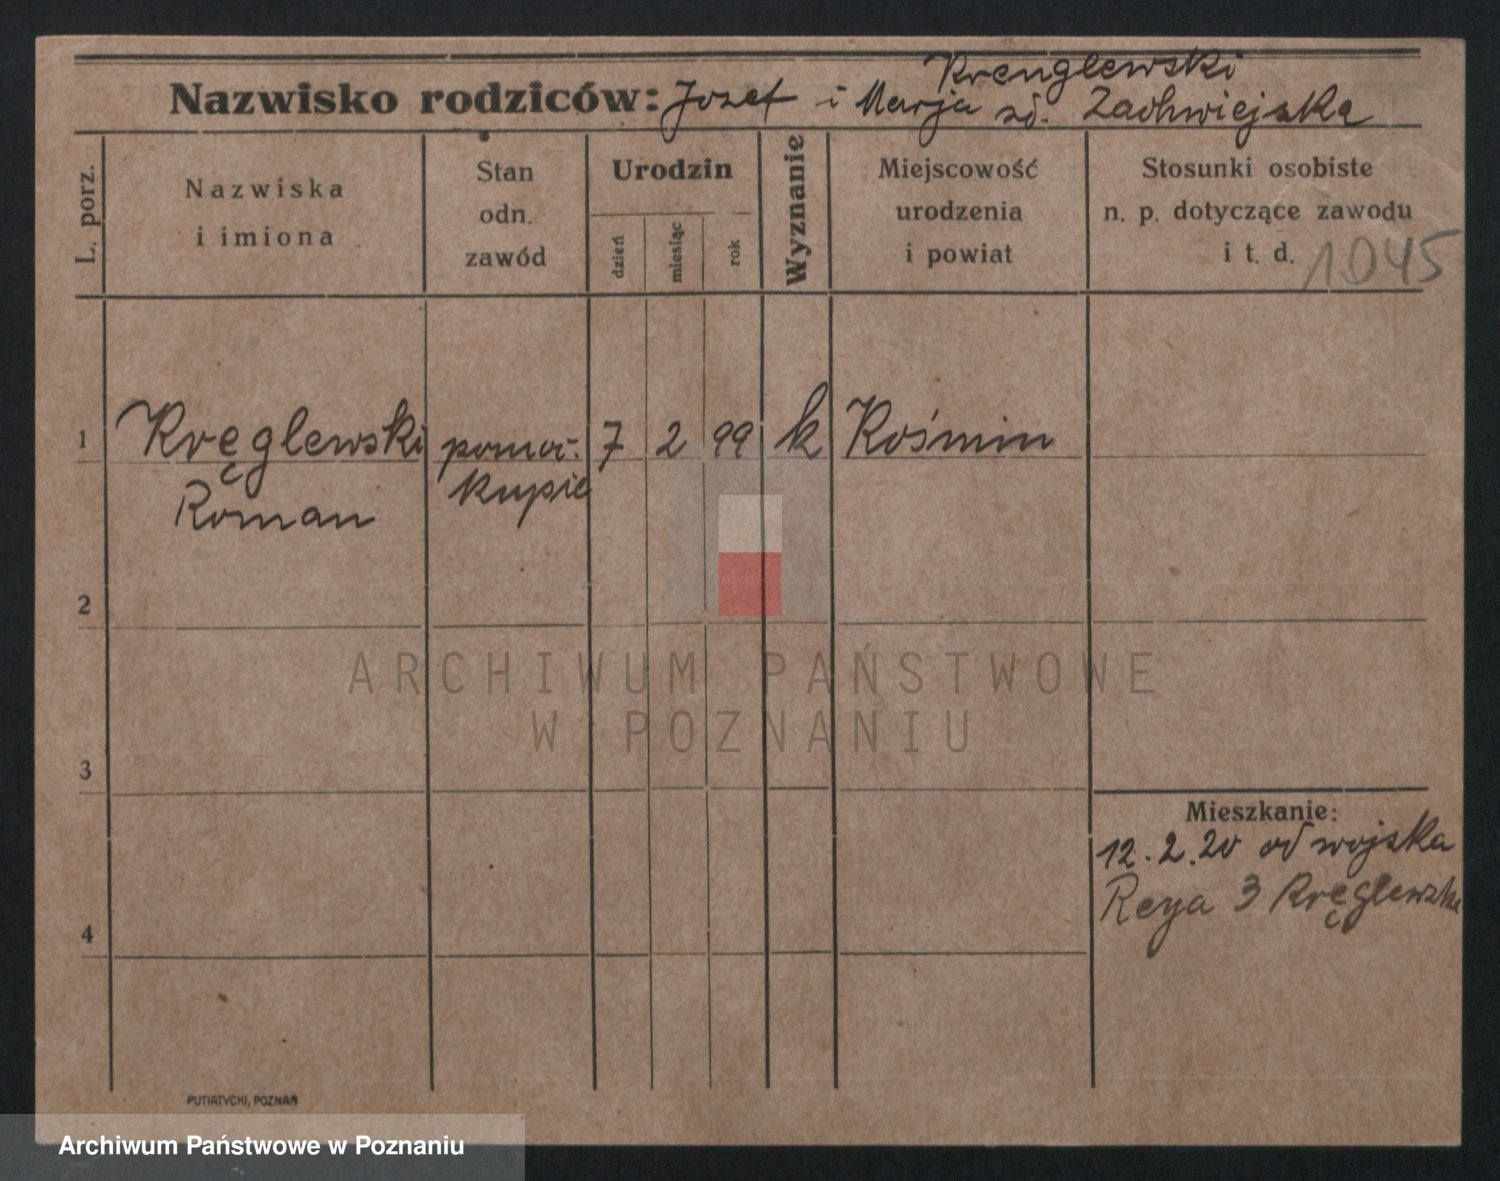 Krenglewski
Nazwisko rodziców: Jozef i Marja zd. Zachwiejska
L. porz.
Nazwiska
i imiona
Stan
odn.
zawód
Urodzin
dzień
miesiąc
rok
Wyznanie
Miejscowość
urodzenia
i powiat
Stosunki osobiste
n. p. dotyczące zawodu
i t. d. 1045
1 Kręglewski pomoc. 7 2 99 k Kośmin
Roman kupie
2
3
4
Mieszkanie:
12.2.20 od wojska
Reya 3 Kręglewska
PUTIATYCKI, POZNAŃ
ARCHIWUM PAŃSTWOWE
W POZNANIU
Archiwum Państwowe w Poznaniu